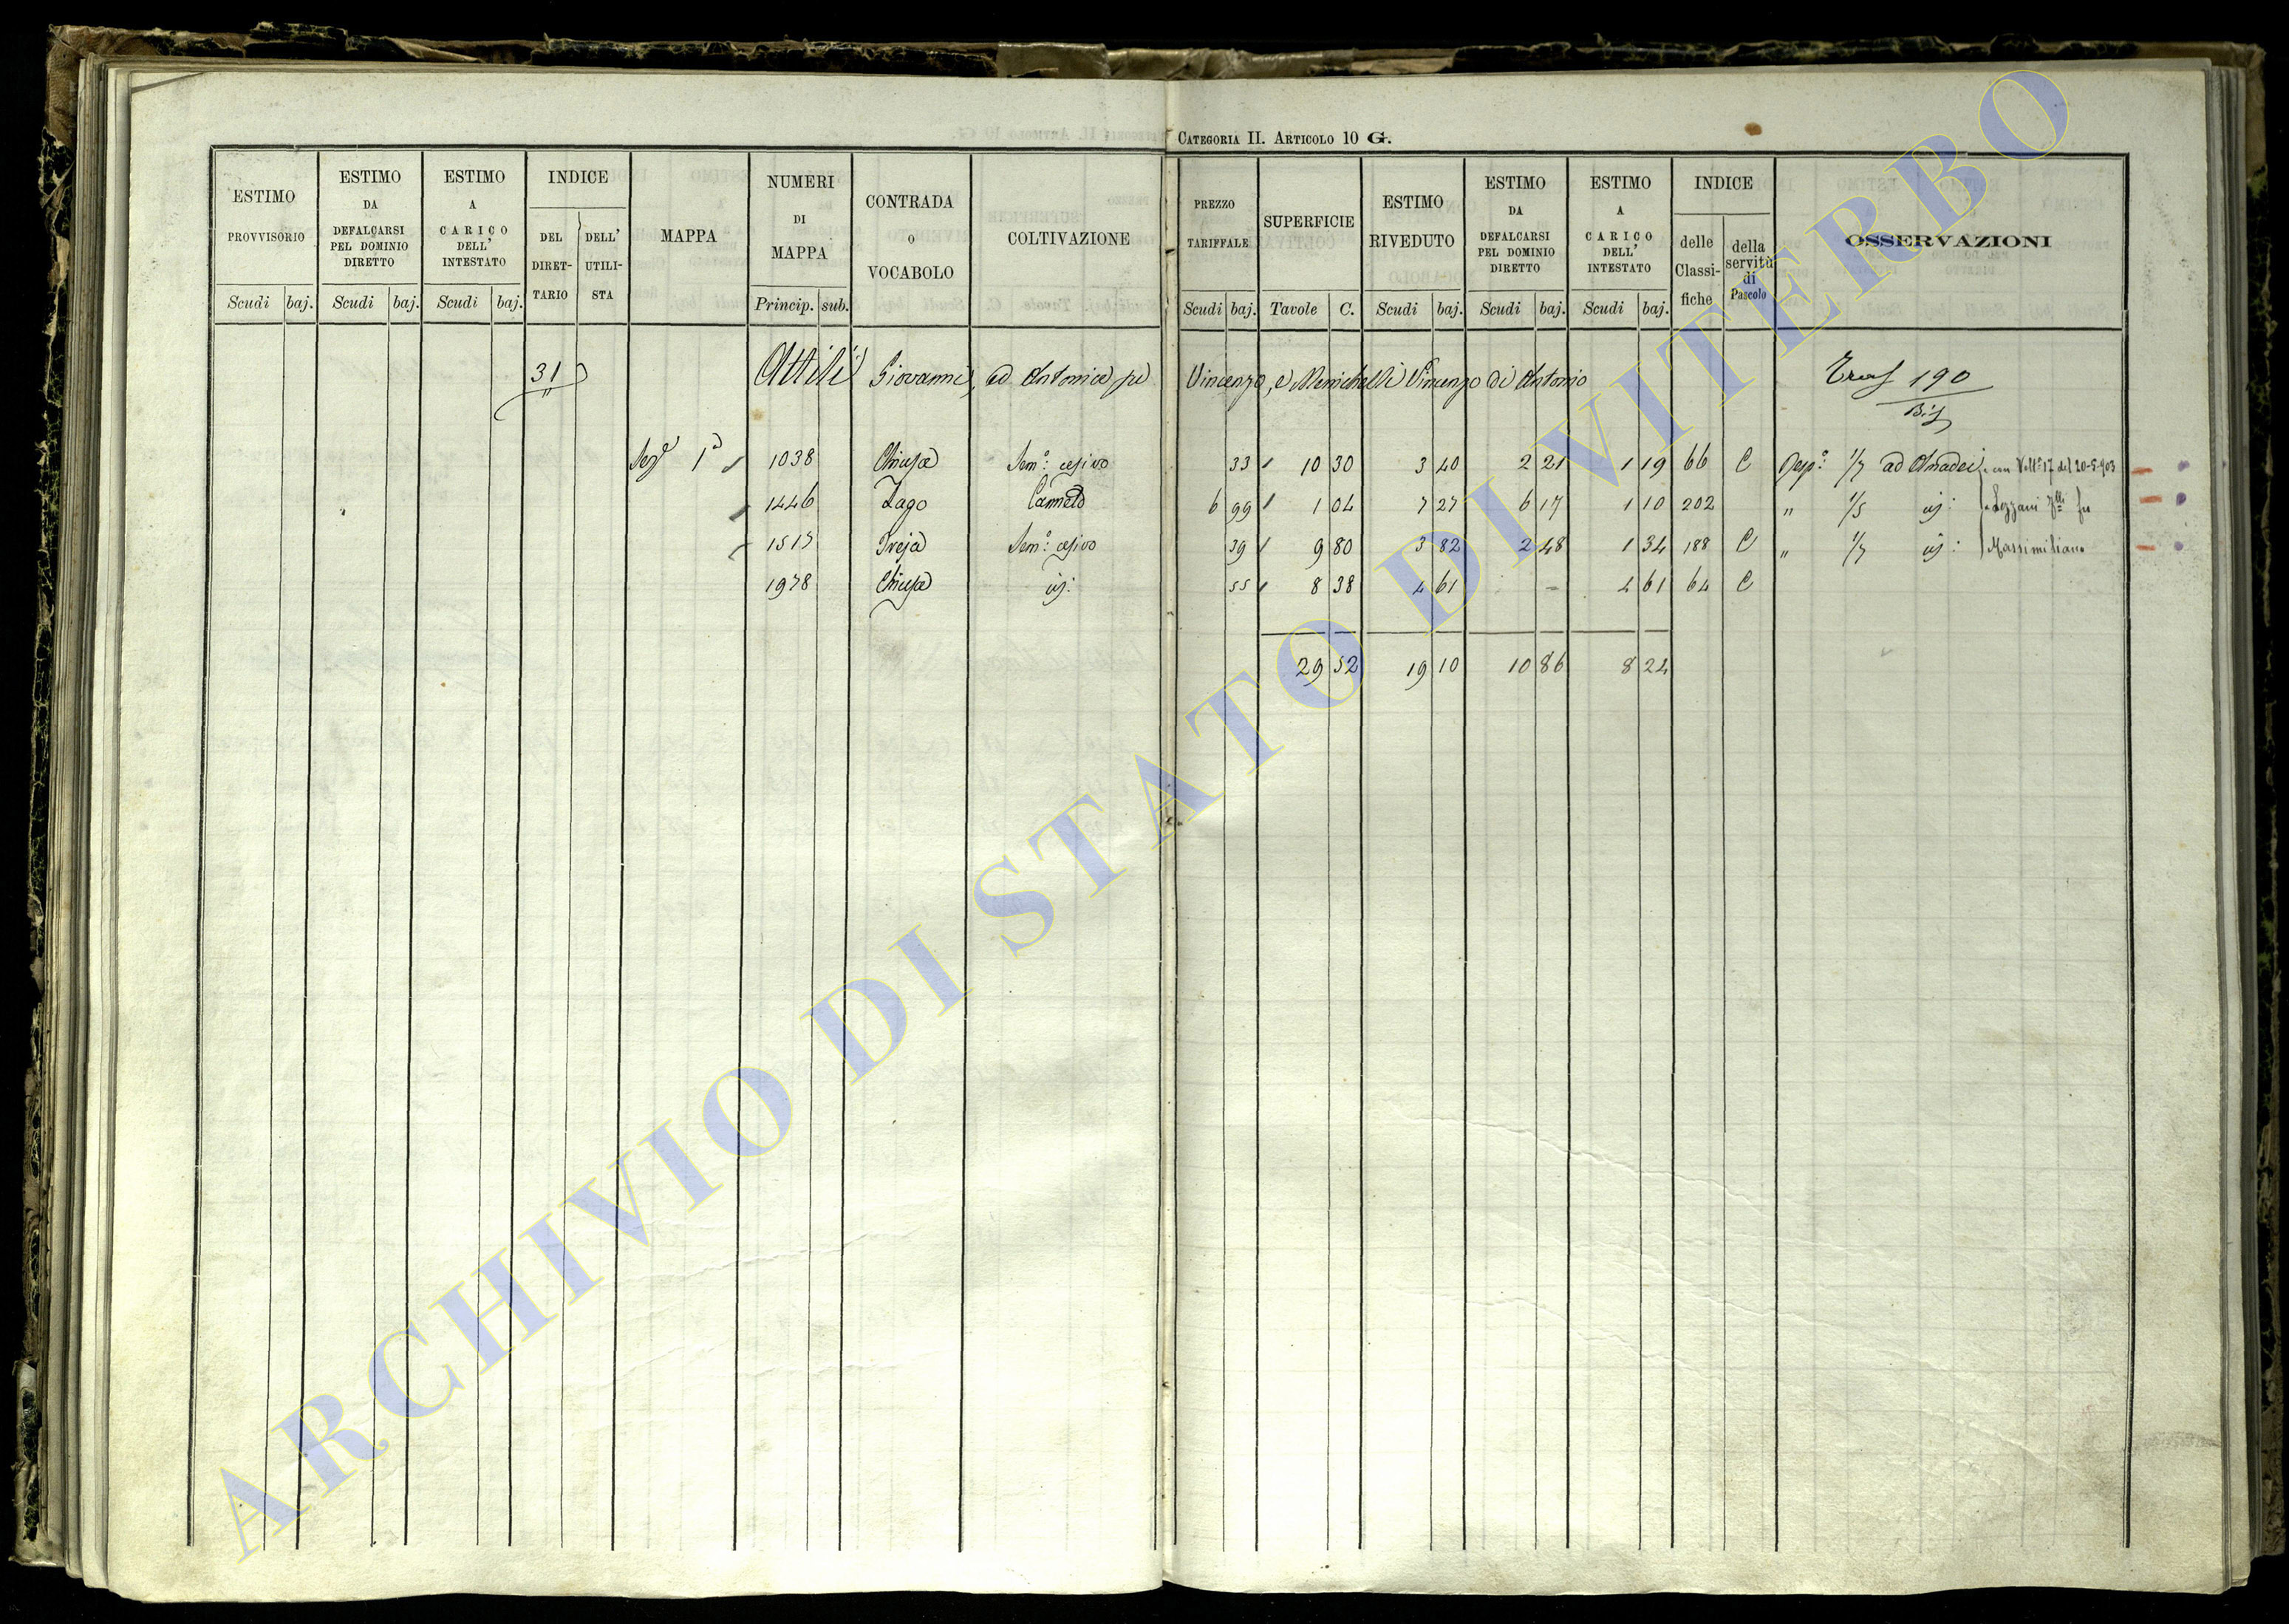 CATEGORIA II. ARTICOLO 10 G.
ESTIMO PROVVISORIO Scudi baj. ESTIMO DA DEFALCARSI PEL DOMINIO DIRETTO Scudi baj. ESTIMO A CARICO DELL' INTESTATO Scudi baj. INDICE DEL DIRETTARIO DELL' UTILISTA MAPPA NUMERI DI MAPPA Princip. sub. CONTRADA O VOCABOLO COLTIVAZIONE PREZZO TARIFFALE Scudi baj. SUPERFICIE Tavole C. ESTIMO RIVEDUTO Scudi baj. ESTIMO DA DEFALCARSI PEL DOMINIO DIRETTO Scudi baj. ESTIMO A CARICO DELL' INTESTATO Scudi baj. INDICE delle Classifiche della servitù di Pascolo OSSERVAZIONI
31 Attili Giovanni, ed Antonia fu Vincenzo, e Menichelli Vincenzo di Antonio 190
Bis
Sez.e 1a 1038 Chiusa Sem.o 33 10 30 3 40 2 21 1 19 66 C Resp.e 1/7 ad Amadei con Volt.a 17 del 20-5-903
1446 Lago Canneto 6 99 1 04 7 27 6 17 1 10 202 " 1/5 id: Lezzani fu
1515 Treja Sem.o 39 9 80 3 82 2 48 1 34 188 C " 1/7 id: Massimiliano
1978 Chiusa id: 55 8 38 4 61 - 4 61 64 C
29 52 19 10 10 86 8 24
ARCHIVIO DI STATO DI VITERBO